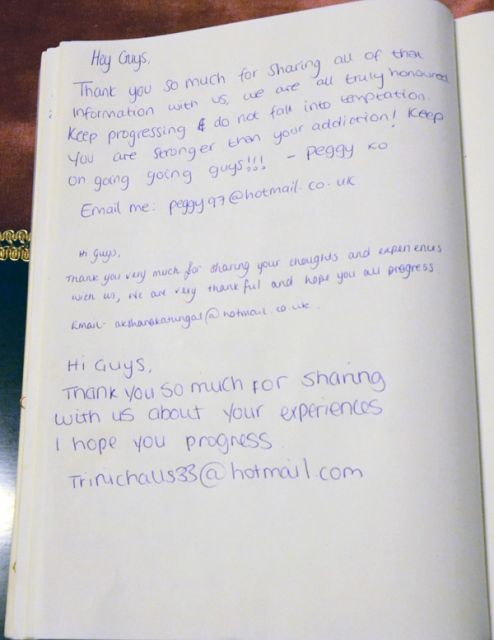 Hey Guys,
Thank you so much for sharing all of that
information with us, we are all truly honoured
Keep progressing & do not fall into temptation.
You are stronger than your addiction! Keep
on going going guys!!! - Peggy xo
Email me: peggy97@hotmail.co.uk
Hi guys,
Thank you very much for sharing your thoughts and experiences
with us, We are very thankful and hope you all progress.
Email-
Hi Guys,
Thank you so much for sharing
with us about your experiences
I hope you progress.